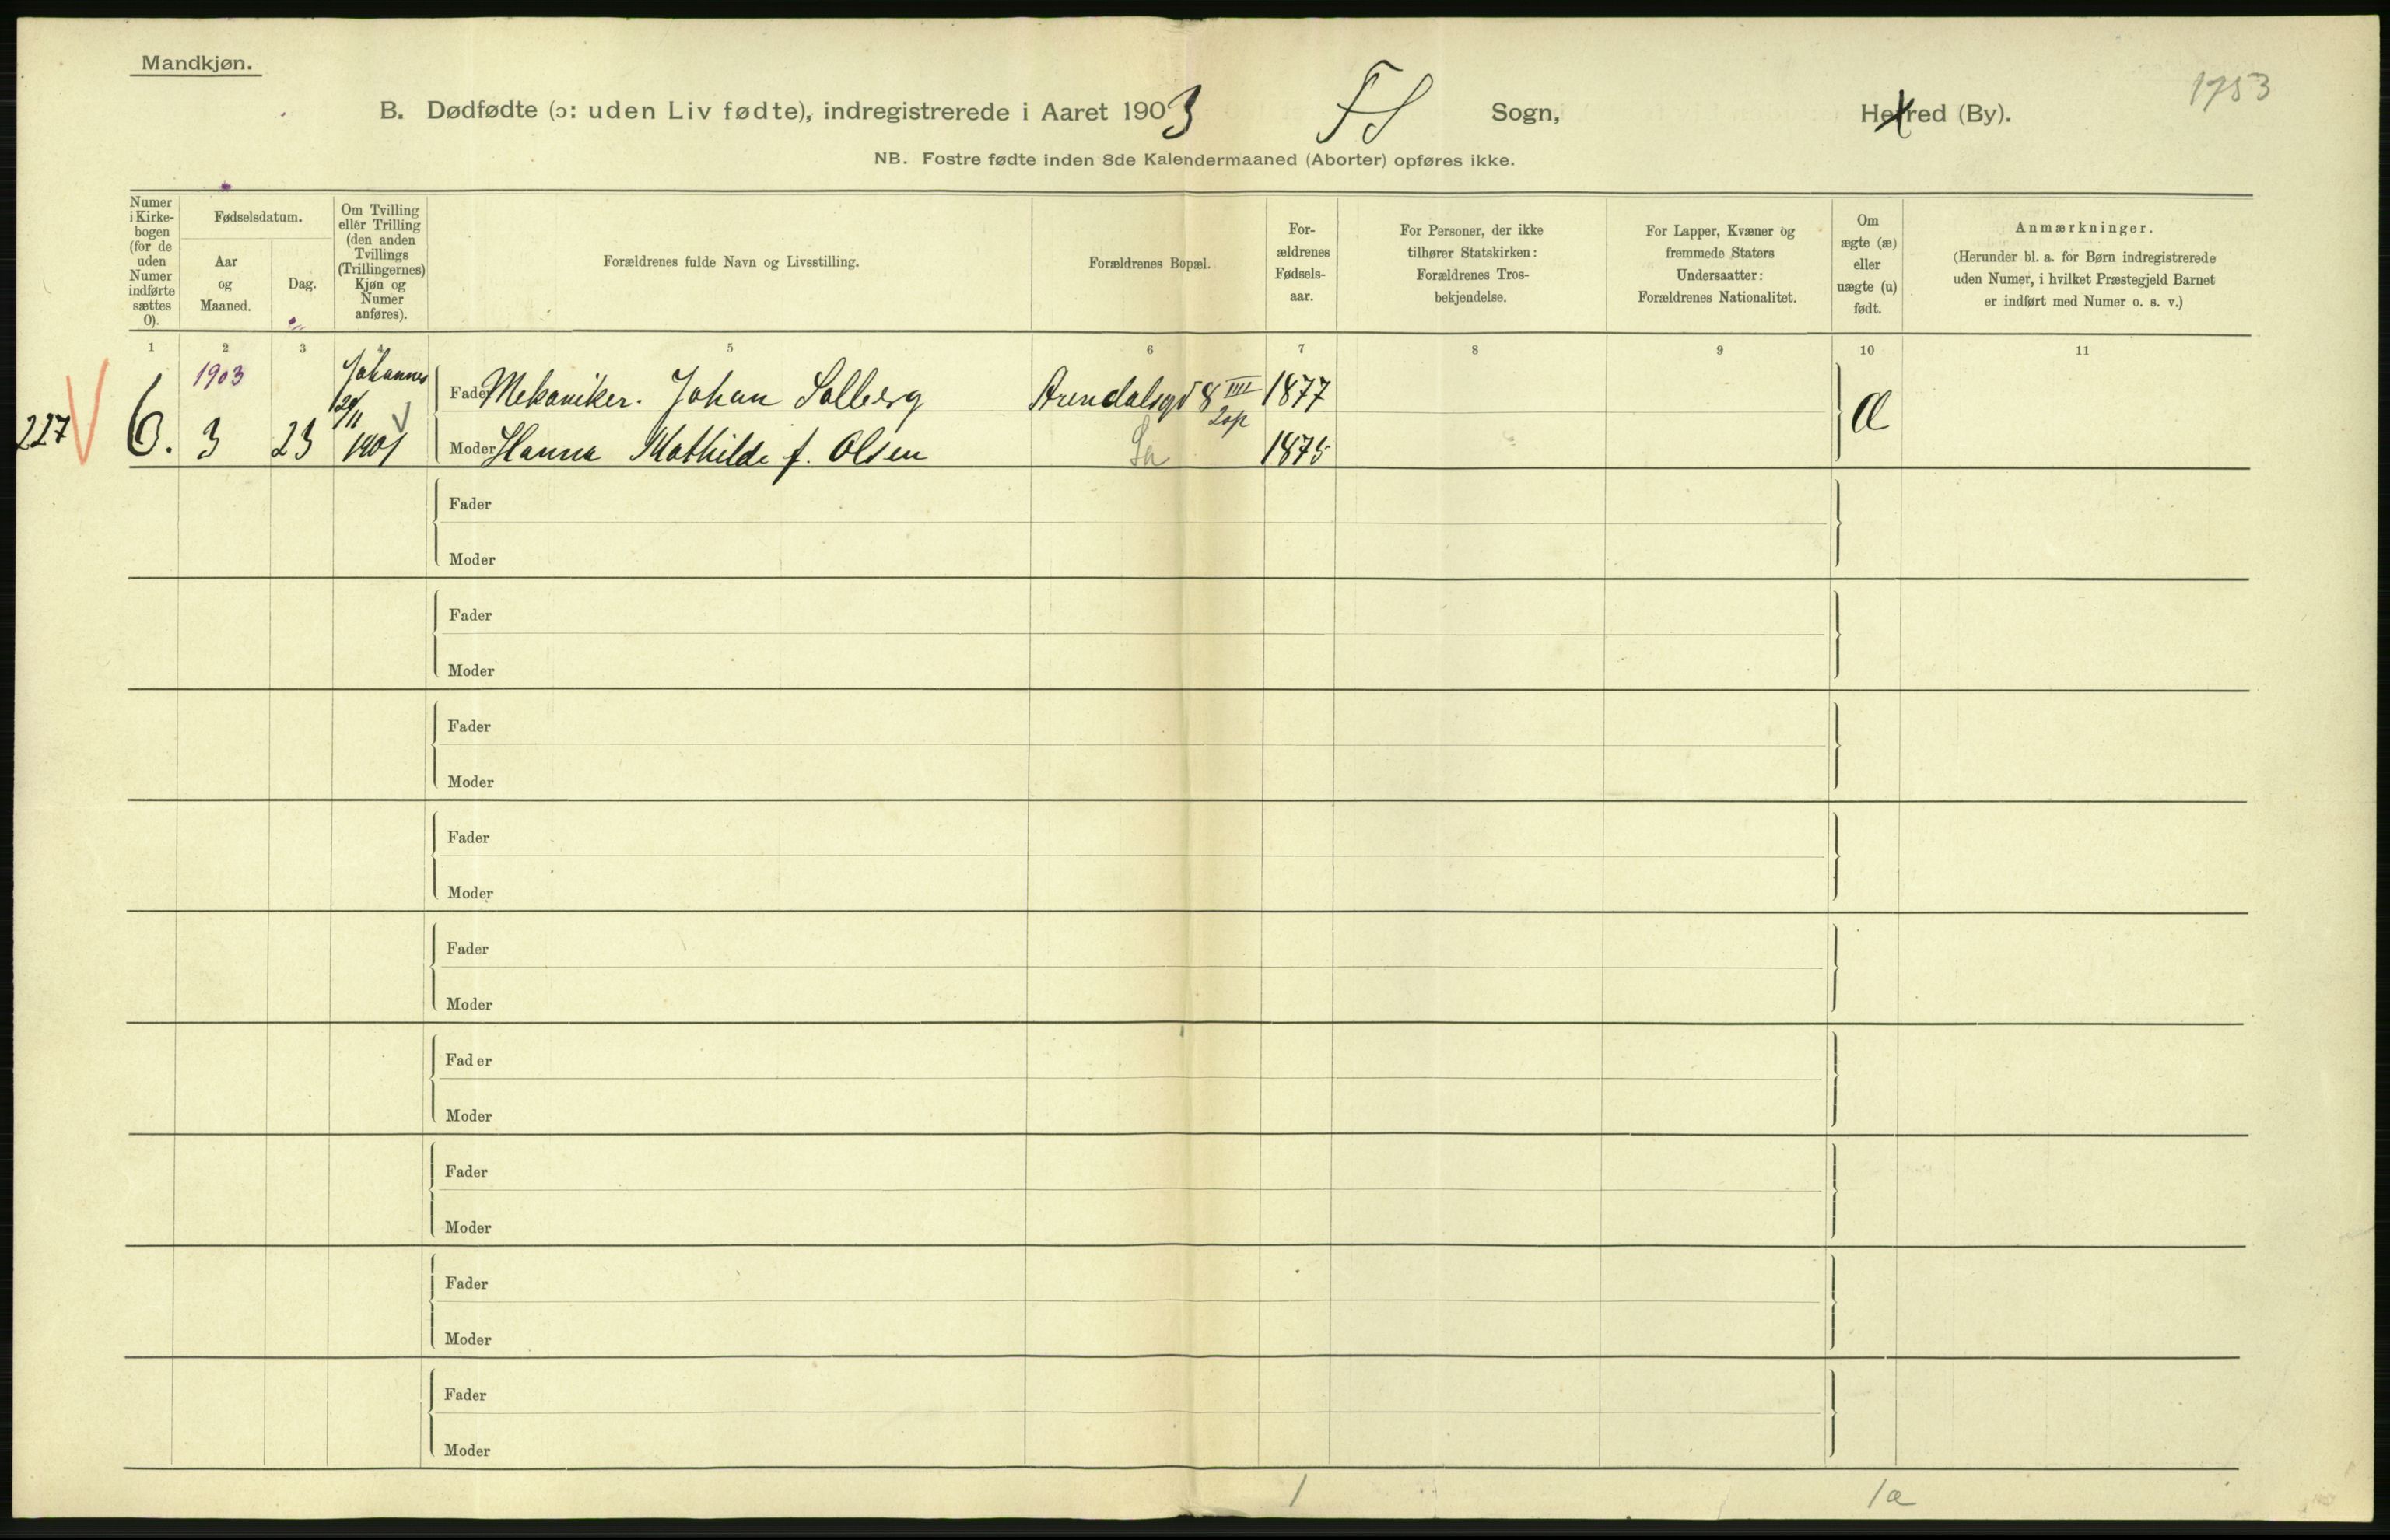 Mandkjøn.
1753
B. Dødfødte (ɔ: uden Liv fødte), indregistrerede i Aaret 1903 Sogn, Herred (By).
NB. Fostre fødte inden 8de Kalendermaaned (Aborter) opføres ikke.
Numer
i Kirke-
bogen
(for de
uden
Numer
indførte
sættes
0).
Fødselsdatum.
Aar
og
Maaned.
Dag.
Om Tvilling
eller Trilling
(den anden
Tvillings
(Trillingernes)
Kjøn og
Numer
anføres).
Forældrenes fulde Navn og Livsstilling.
Forældrenes Bopæl.
For-
ældrenes
Fødsels-
aar.
For Personer, der ikke
tilhører Statskirken:
Forældrenes Tros-
bekjendelse.
For Lapper, Kvæner og
fremmede Staters
Undersaatter:
Forældrenes Nationalitet.
Om
ægte (æ)
eller
uægte (u)
født.
Anmærkninger.
(Herunder bl. a. for Børn indregistrerede
uden Numer, i hvilket Præstegjeld Barnet
er indført med Numer o. s. v.)
1 2 3 4 5 6 7 8 9 10 11
1903 Johannes
Fader Mekaniker. Johan Solberg Arendalsgd 8 IIII 1877
2op
227 V 6. 3 23 1901 Moder Hanna Mathilde f. Olsen 1875 æ
Fader
Moder
Fader
Moder
Fader
Moder
Fader
Moder
Fader
Moder
Fader
Moder
Fader
Moder
Fader
Moder
Fader
Moder
1 1æ